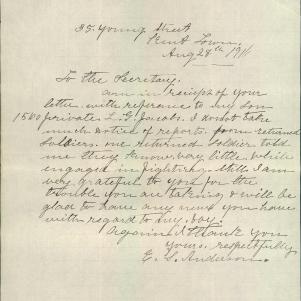 35 Young Street
Kent Town
Aug 28th 191
To the Secretary.
am in receipt of your
letter with reference to my son
1560 private L. G. Jacobs. I do not take
much notice of reports from returned
Soldiers. one returned soldier told
me they know very little while
engaged in fighting. Still I am
very grateful to you for the
trouble you are taking & will be
glad to have any news you have
with regard to my boy.
Again I thank you
yours respectfully
E. S. Anderson.